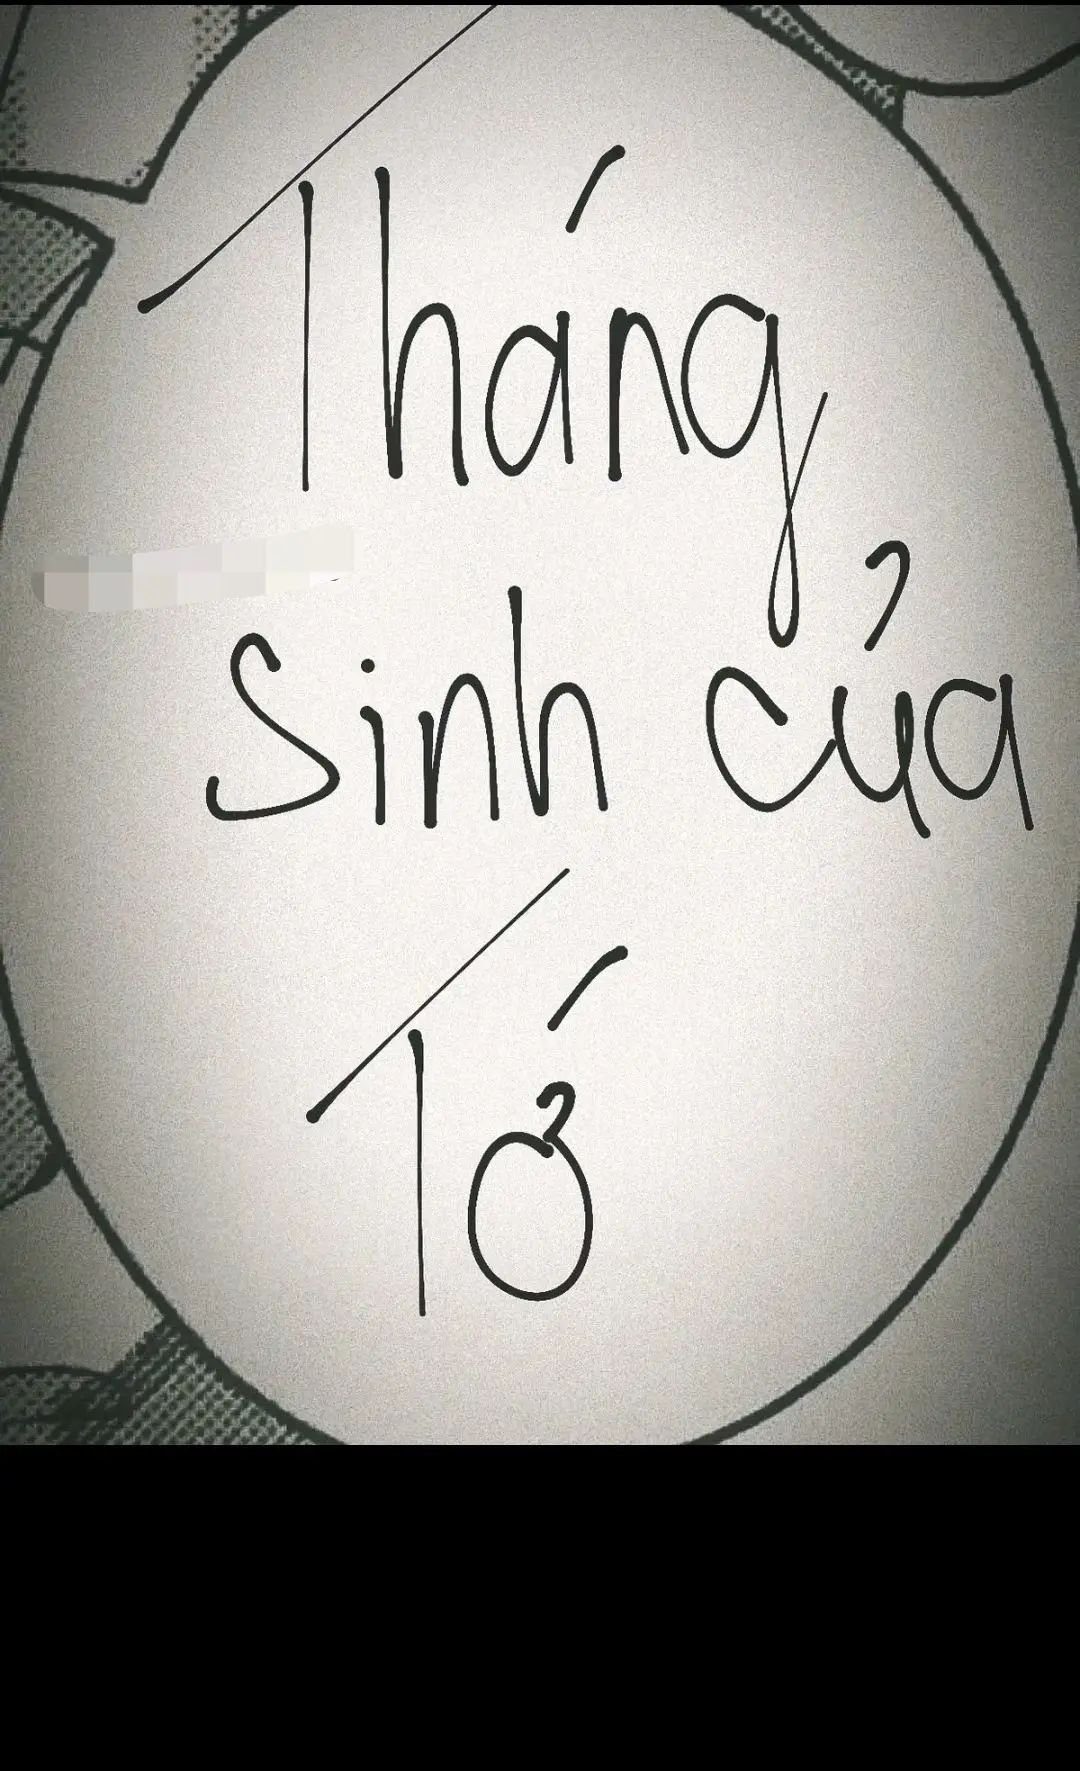 Tháng
Sinh của
Tớ